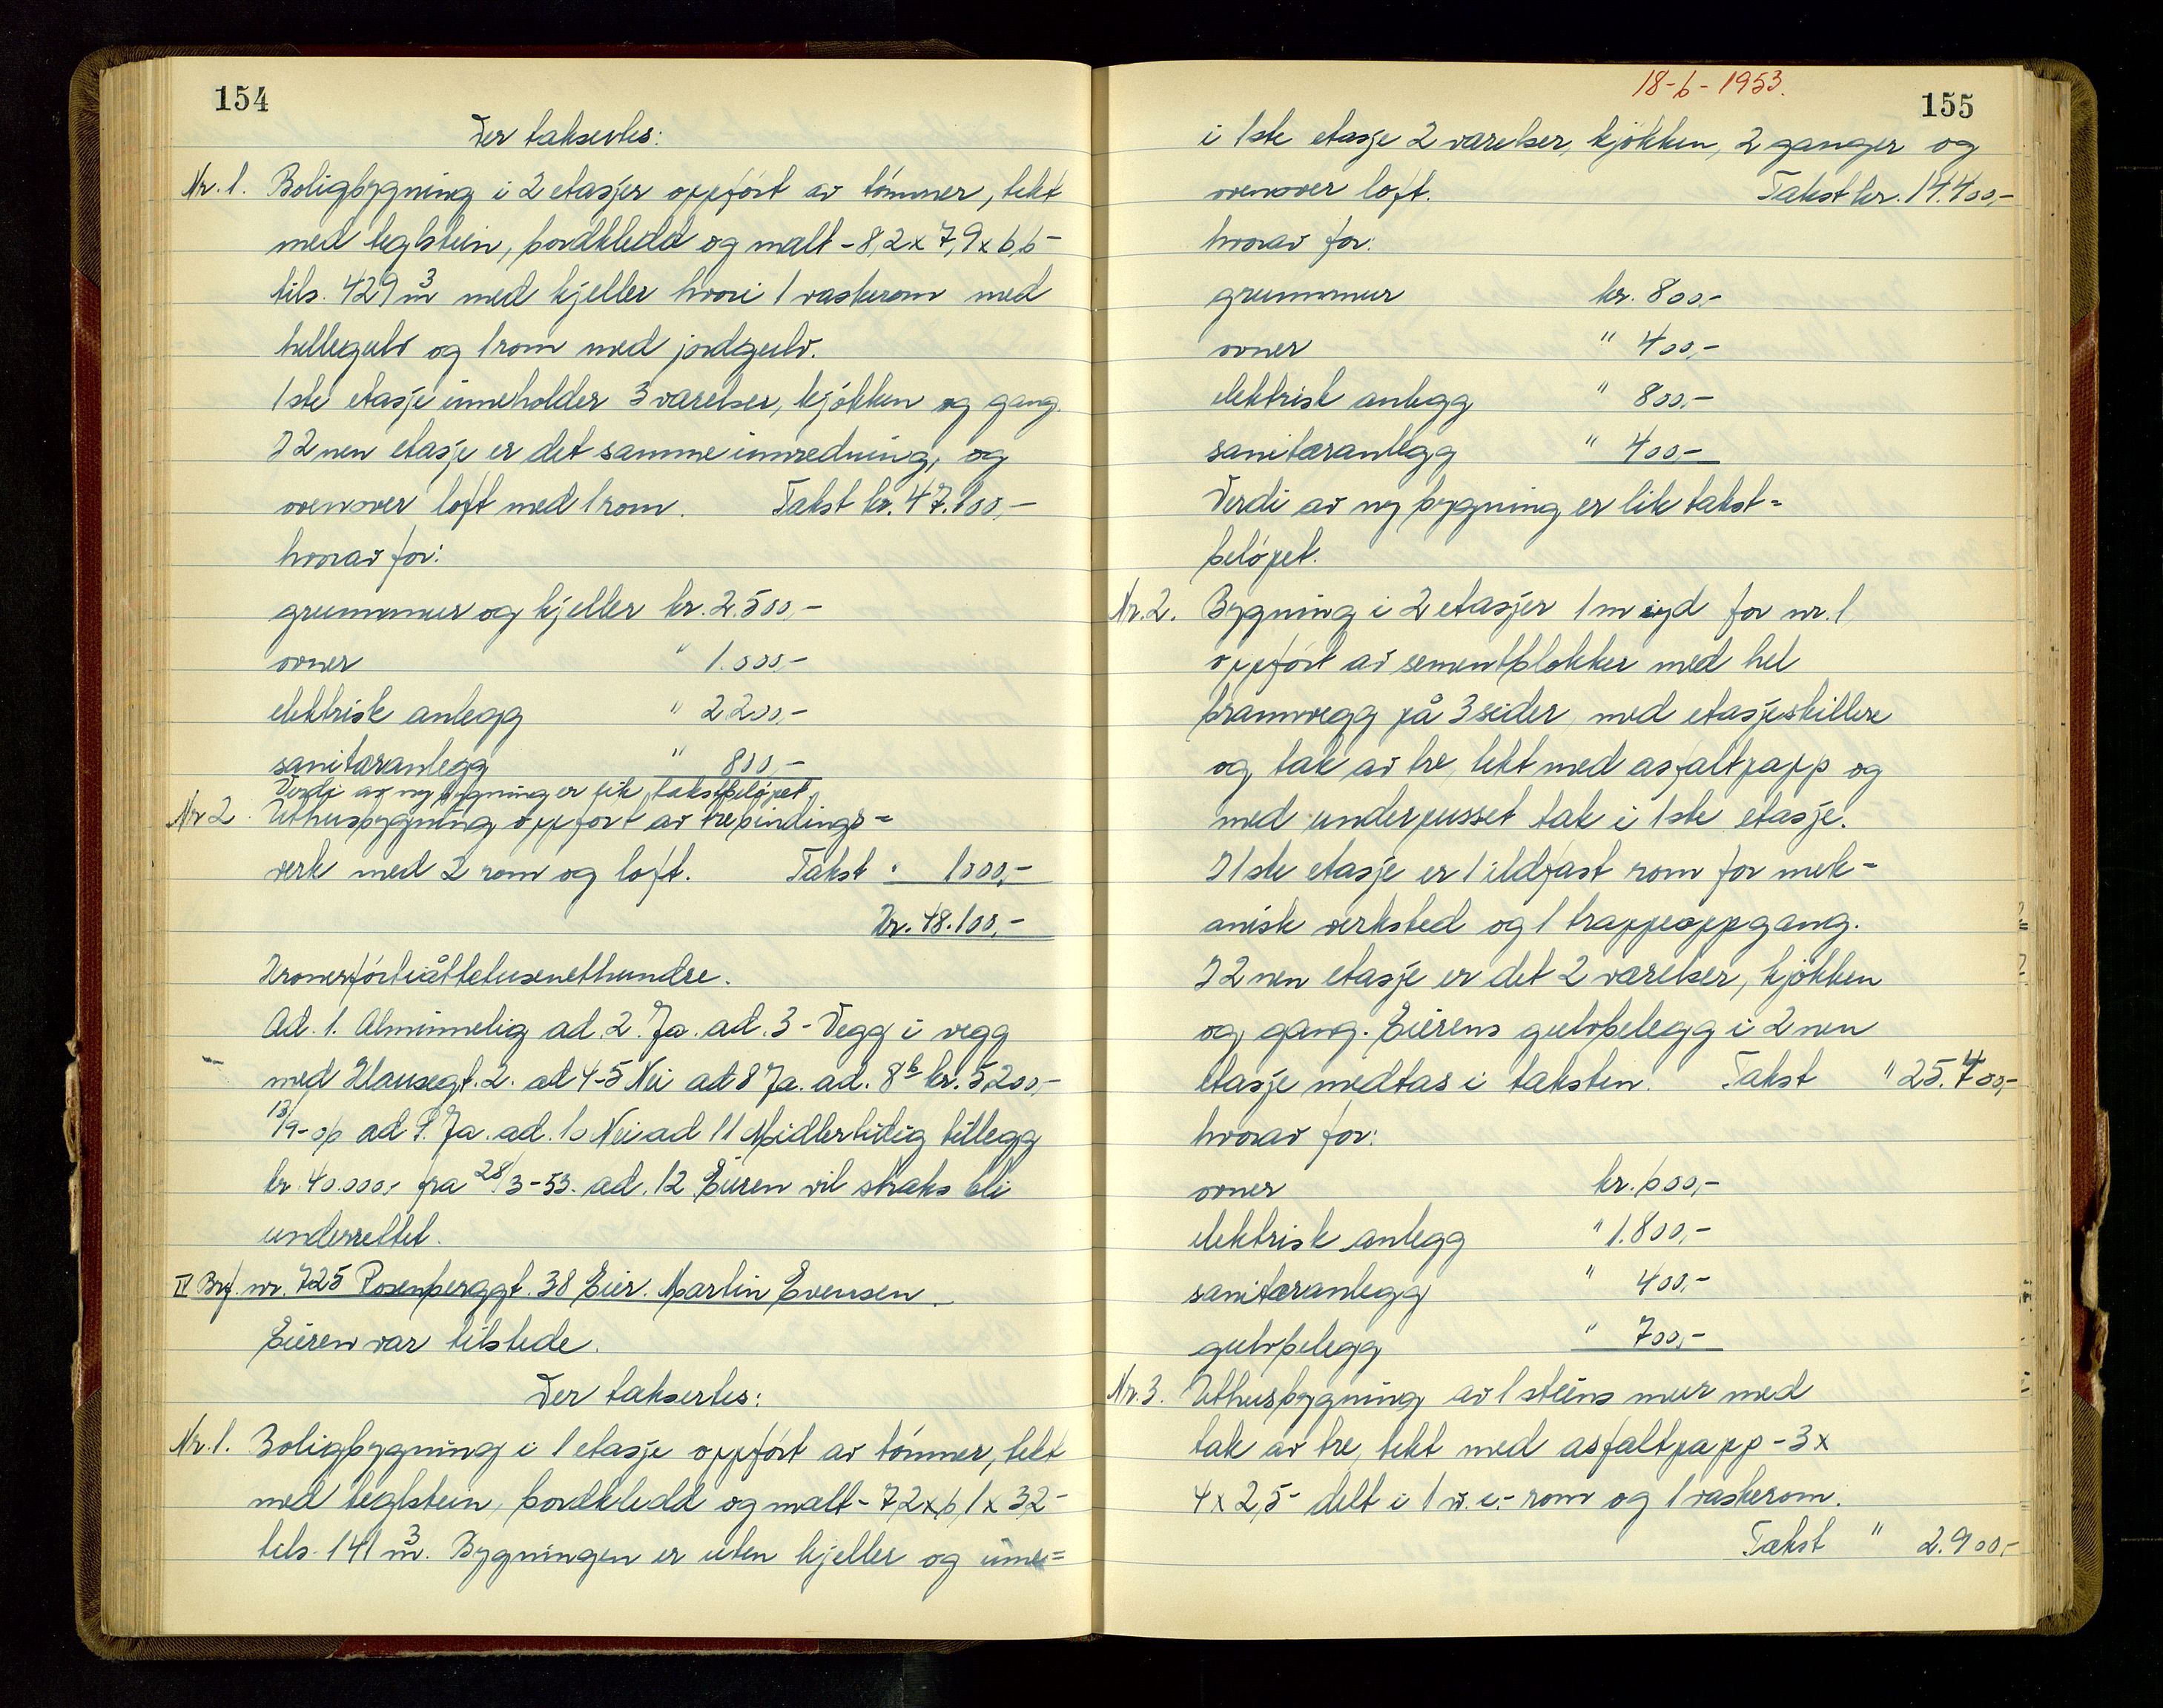 154
Der takseres:
Nr. 1. Boligbygning i 2 etasjer oppført av tømmer, tekt
med teglstein, bordkledd og malt - 8,2 x 7,9 x 6,6 -
tils. 429 m³ med kjeller hvori 1 vaskerom med
hellegulv og 1 rom med jordgulv.
1ste etasje inneholder 3 værelser, kjøkken og gang.
I 2nen etasje er det samme innredning, og
ovenover loft med 1 rom. Takst kr. 47.100,-
hvorav for:
grunnmur og kjeller kr. 2.500,-
ovner " 1.000-
elektrisk anlegg " 2.200,-
sanitæranlegg " 800,-
Verdi av ny bygning er lik takstbeløpet.
Nr 2. Uthusbygning oppført av trebindings=
verk med 2 rom og loft. Takst " 1000,-
Kr. 48.100,-
Kronerførtiåttetusenethundre.
Ad. 1. Alminnelig ad. 2. Ja. ad. 3 - Vegg i vegg
med Klausegt. 2. ad 4-5 Nei ad 8 Ja. ad. 8b kr. 5.200,-
13/9-06 ad 9. Ja. ad. 10 Nei ad 11 Midlertidig tillegg
kr. 40.000,- fra 28/3-53. ad. 12 Eieren vil straks bli
underrettet.
IV Brf. nr. 725 Rosenberggt. 38 Eier. Martin Evensen.
Eieren var tilstede.
Der takseres:
Nr. 1. Boligbygning i 1 etasje oppført av tømmer, tekt
med teglstein, bordkledd og malt - 7,2 x 6,1 x 3,2 -
tils. 141 m³. Bygningen er uten kjeller og inne=
18-6-1953.
155
i 1ste etasje 2 værelser, kjøkken, 2 ganger og
ovenover loft. Takst kr. 14.400,-
hvorav for:
grunnmur kr. 800,-
ovner " 400,-
elektrisk anlegg " 800,-
sanitæranlegg " 400-
Verdi av ny bygning er lik takst=
beløpet.
Nr. 2. Bygning i 2 etasjer 1 m syd for nr. 1
oppført av sementblokker med hel
brannvegg på 3 sider, med etasjeskillere
og tak av tre, tekt med asfaltpapp og
med underpusset tak i 1ste etasje.
I 1ste etasje er 1 ildfast rom for mek=
anisk verksted og 1 trappeoppgang.
I 2nen etasje er det 2 værelser, kjøkken
og gang. Eierens gulvbelegg i 2nen
etasje medtas i taksten. Takst " 25.400,-
hvorav for:
ovner kr. 600,-
elektrisk anlegg " 1.800,-
sanitæranlegg " 400,-
gulvbelegg " 700,-
Nr. 3. Uthusbygning av 1 steins mur med
tak av tre, tekt med asfaltpapp - 3 x
4 x 2,5 - delt i 1 w.c.- rom og 1 vaskerom.
Takst " 2.900,-